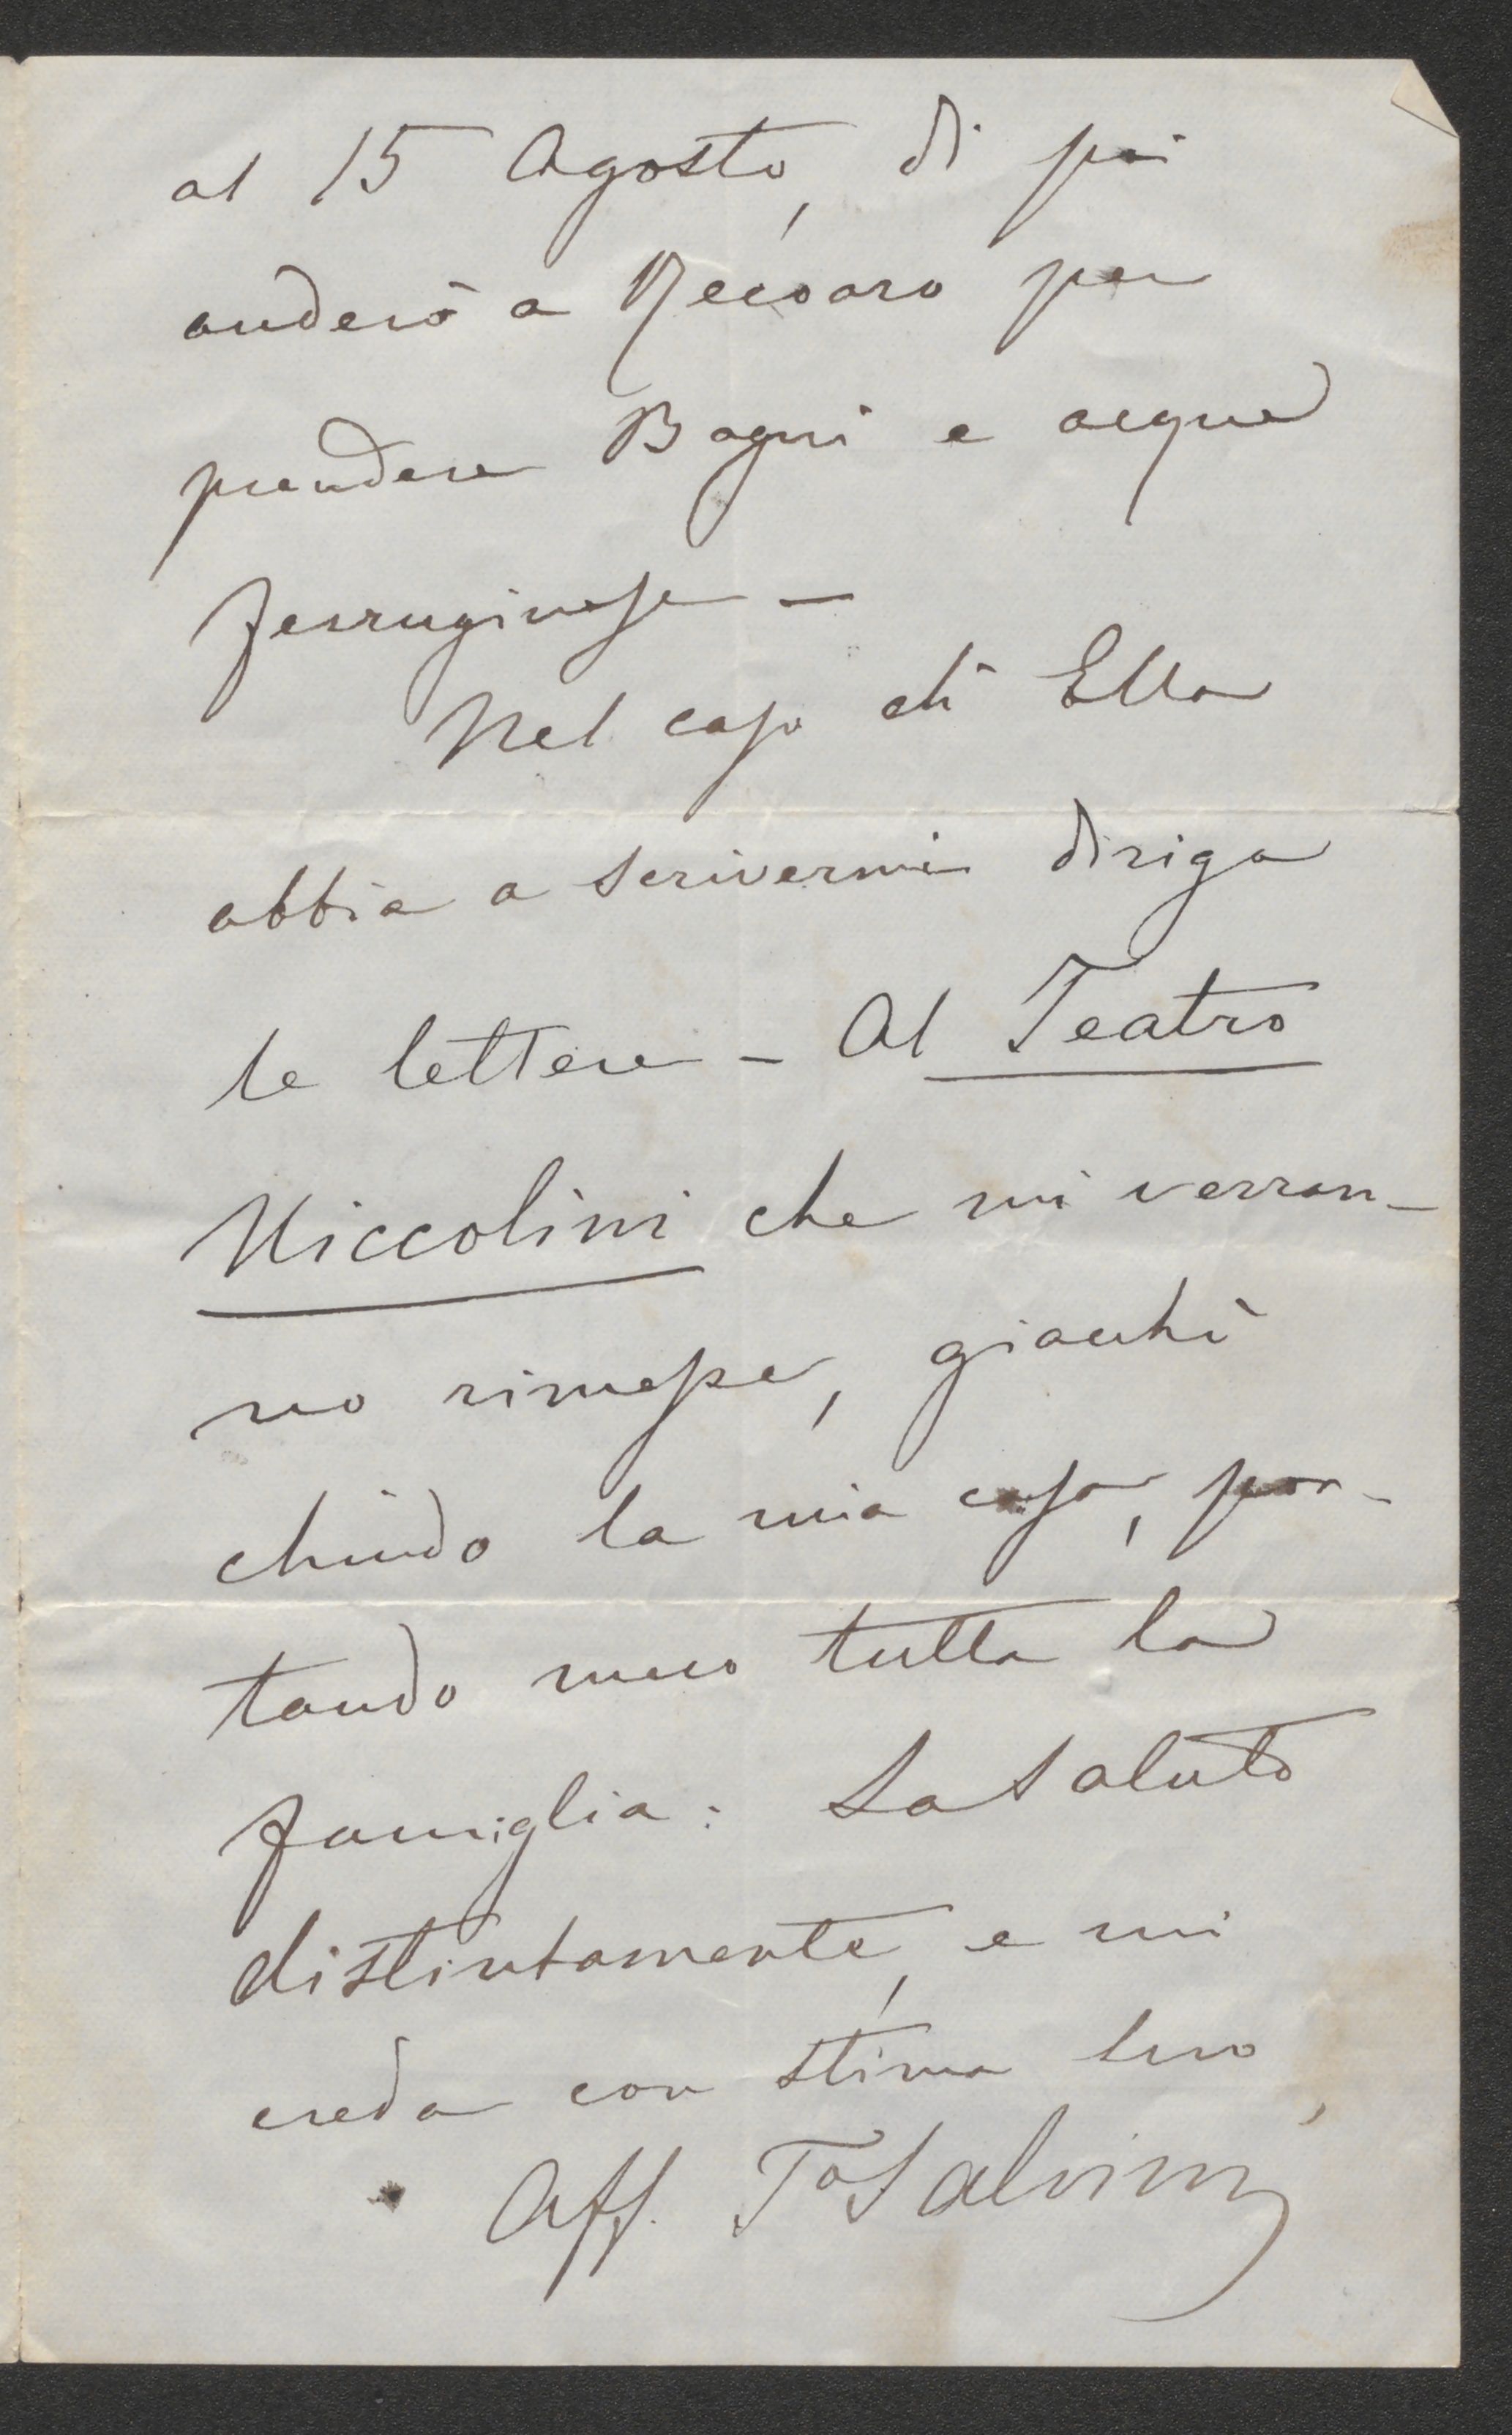 al 15 Agosto, di poi
anderò a Recoaro per
prendere Bagni e acque
ferruginose —
Nel caso ch' Ella
abbia a scrivermi diriga
le lettere – Al Teatro
Niccolini che mi verran-
no rimesse, giacchè
chiudo la mia casa, por-
tando meco tutta la
famiglia: La saluto
distintamente, e mi
creda con stima suo,
Aff. To Salvini